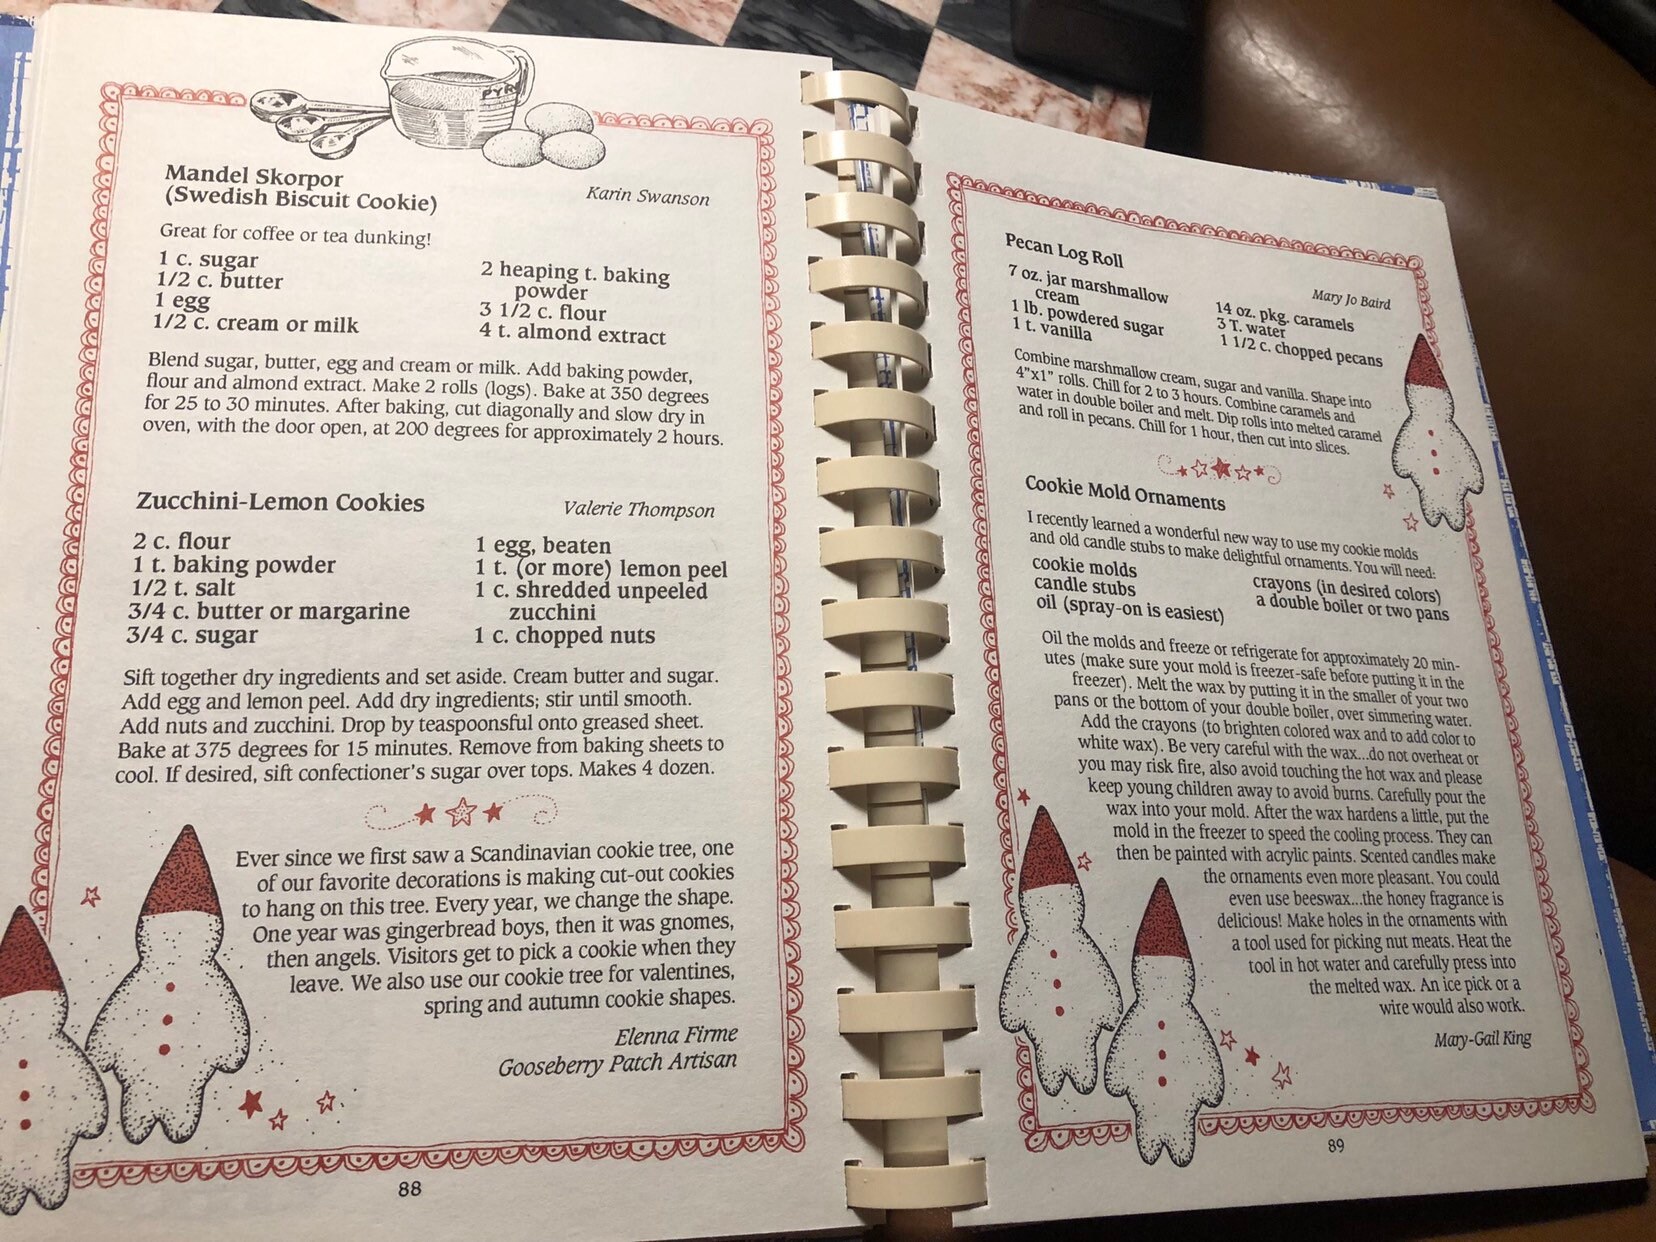 PYR
Mandel Skorpor
(Swedish Biscuit Cookie)
Karin Swanson
Great for coffee or tea dunking!
1 c. sugar
1/2 c. butter
1 egg
1/2 c. cream or milk
2 heaping t. baking
powder
3 1/2 c. flour
4 t. almond extract
Blend sugar, butter, egg and cream or milk. Add baking powder,
flour and almond extract. Make 2 rolls (logs). Bake at 350 degrees
for 25 to 30 minutes. After baking, cut diagonally and slow dry in
oven, with the door open, at 200 degrees for approximately 2 hours.
Zucchini-Lemon Cookies
Valerie Thompson
2 c. flour
1 t. baking powder
1/2 t. salt
3/4 c. butter or margarine
3/4 c. sugar
1 egg, beaten
1 t. (or more) lemon peel
1 c. shredded unpeeled
zucchini
1 c. chopped nuts
Sift together dry ingredients and set aside. Cream butter and sugar.
Add egg and lemon peel. Add dry ingredients; stir until smooth.
Add nuts and zucchini. Drop by teaspoonsful onto greased sheet.
Bake at 375 degrees for 15 minutes. Remove from baking sheets to
cool. If desired, sift confectioner's sugar over tops. Makes 4 dozen.
Ever since we first saw a Scandinavian cookie tree, one
of our favorite decorations is making cut-out cookies
to hang on this tree. Every year, we change the shape.
One year was gingerbread boys, then it was gnomes,
then angels. Visitors get to pick a cookie when they
leave. We also use our cookie tree for valentines,
spring and autumn cookie shapes.
Elenna Firme
Gooseberry Patch Artisan
88
Pecan Log Roll
Mary Jo Baird
7 oz. jar marshmallow
cream
1 lb. powdered sugar
1 t. vanilla
14 oz. pkg. caramels
3 T. water
1 1/2 c. chopped pecans
Combine marshmallow cream, sugar and vanilla. Shape into
4"x1" rolls. Chill for 2 to 3 hours. Combine caramels and
water in double boiler and melt. Dip rolls into melted caramel
and roll in pecans. Chill for 1 hour, then cut into slices.
Cookie Mold Ornaments
I recently learned a wonderful new way to use my cookie molds
and old candle stubs to make delightful ornaments. You will need:
cookie molds
candle stubs
oil (spray-on is easiest)
crayons (in desired colors)
a double boiler or two pans
Oil the molds and freeze or refrigerate for approximately 20 min-
utes (make sure your mold is freezer-safe before putting it in the
freezer). Melt the wax by putting it in the smaller of your two
pans or the bottom of your double boiler, over simmering water.
Add the crayons (to brighten colored wax and to add color to
white wax). Be very careful with the wax...do not overheat or
you may risk fire, also avoid touching the hot wax and please
keep young children away to avoid burns. Carefully pour the
wax into your mold. After the wax hardens a little, put the
mold in the freezer to speed the cooling process. They can
then be painted with acrylic paints. Scented candles make
the ornaments even more pleasant. You could
even use beeswax...the honey fragrance is
delicious! Make holes in the ornaments with
a tool used for picking nut meats. Heat the
tool in hot water and carefully press into
the melted wax. An ice pick or a
wire would also work.
Mary-Gail King
89